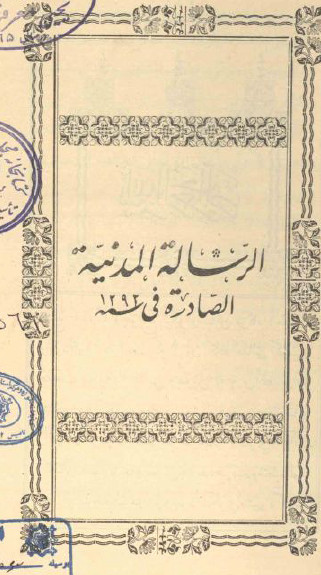 الرّسالة المدنيّة
الصّادرة فی سنه ١٢٩٢